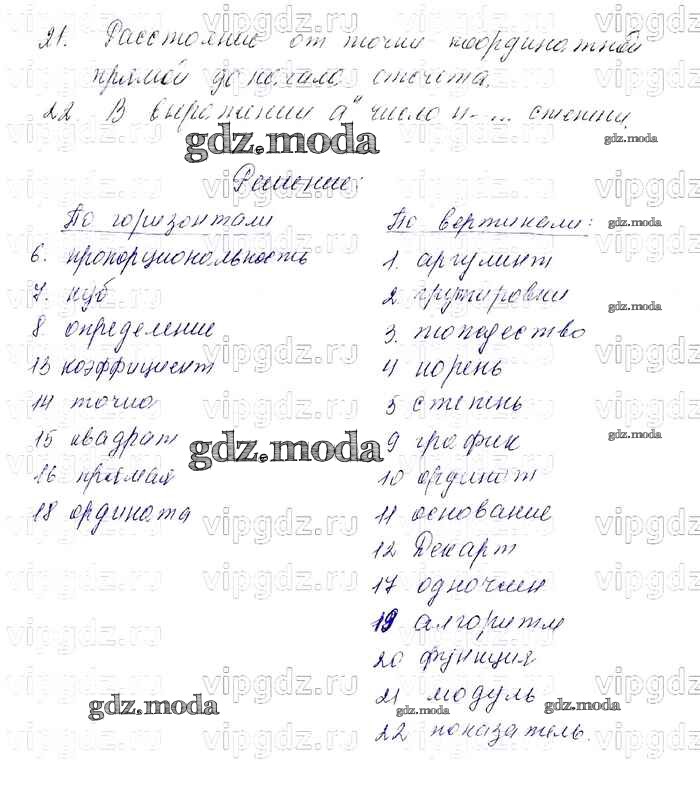 21. Расстояние от точки координатной
прямой до начала отсчёта.
22 В выражении aⁿ число n - ... степени.
Решение:
По горизонтали
6. пропорциональность
7. куб
8 определение
13 коэффициент
14 точка
15 квадрат
16 прямая
18 ордината
По вертикали:
1. аргумент
2 группировки
3. тождество
4 корень
5 степень
9 график
10 ординат
11 основание
12 Декарт
17 одночлен
19 алгоритм
20 функция
21 модуль
22 показатель.
gdz.moda
vipgdz.ru